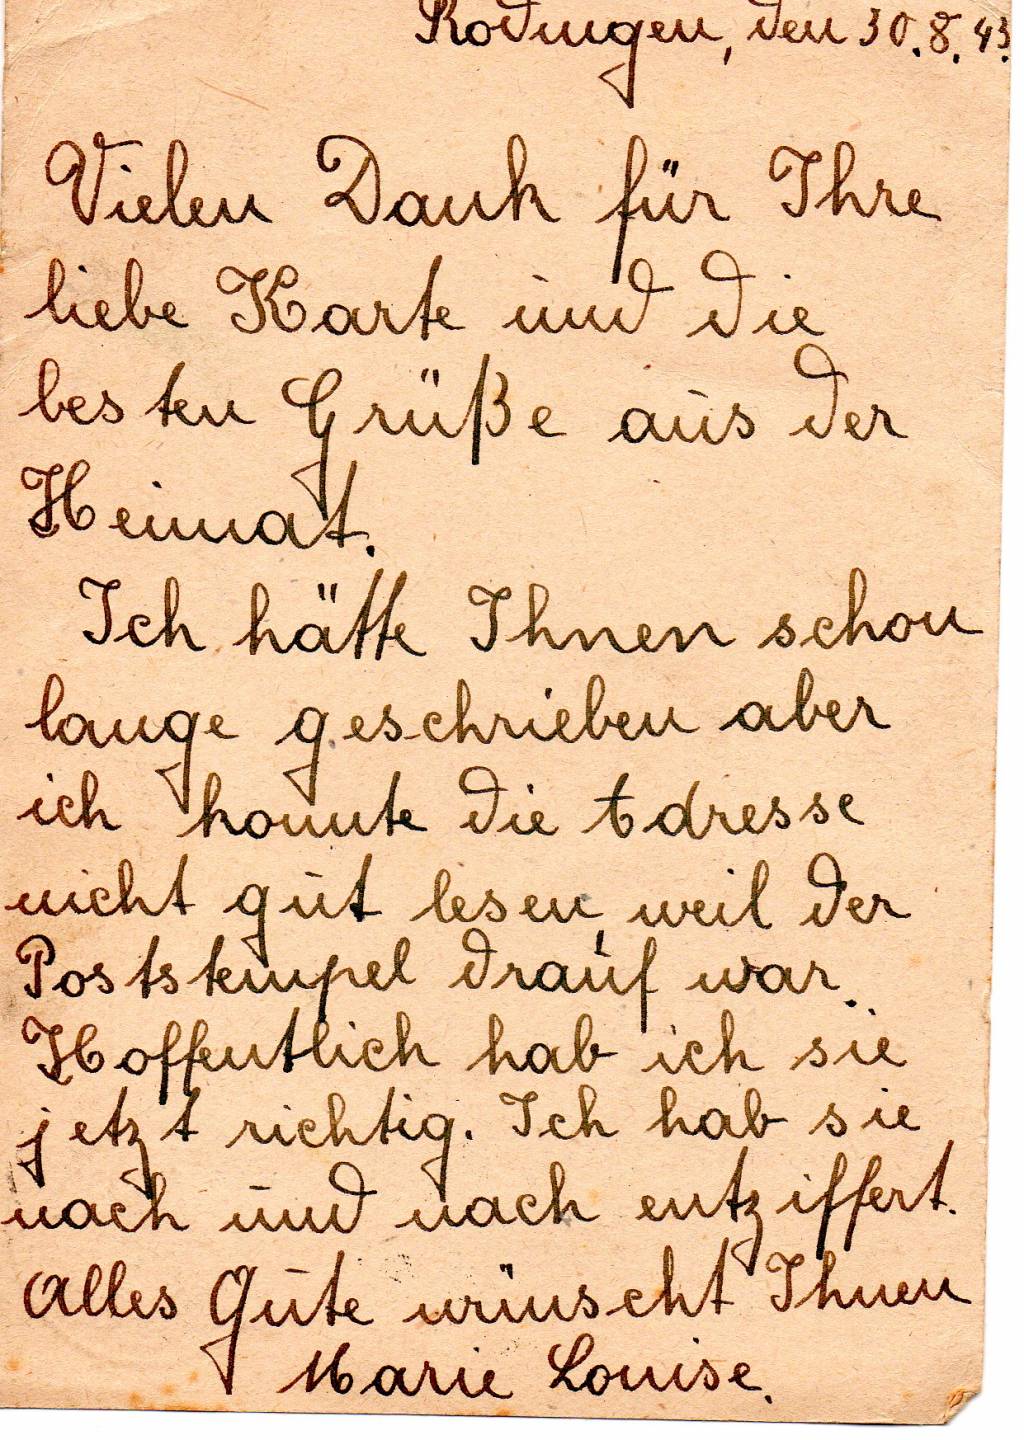 Rodingen, den 30.8.43.
Vielen Dank für Ihre
liebe Karte und die
besten Grüße aus der
Heimat.
Ich hätte Ihnen schon
lange geschrieben aber
ich konnte die Adresse
nicht gut lesen, weil der
Poststempel drauf war.
Hoffentlich hab ich sie
jetzt richtig. Ich hab sie
nach und nach entziffert.
Alles Gute wünscht Ihnen
Marie Louise.